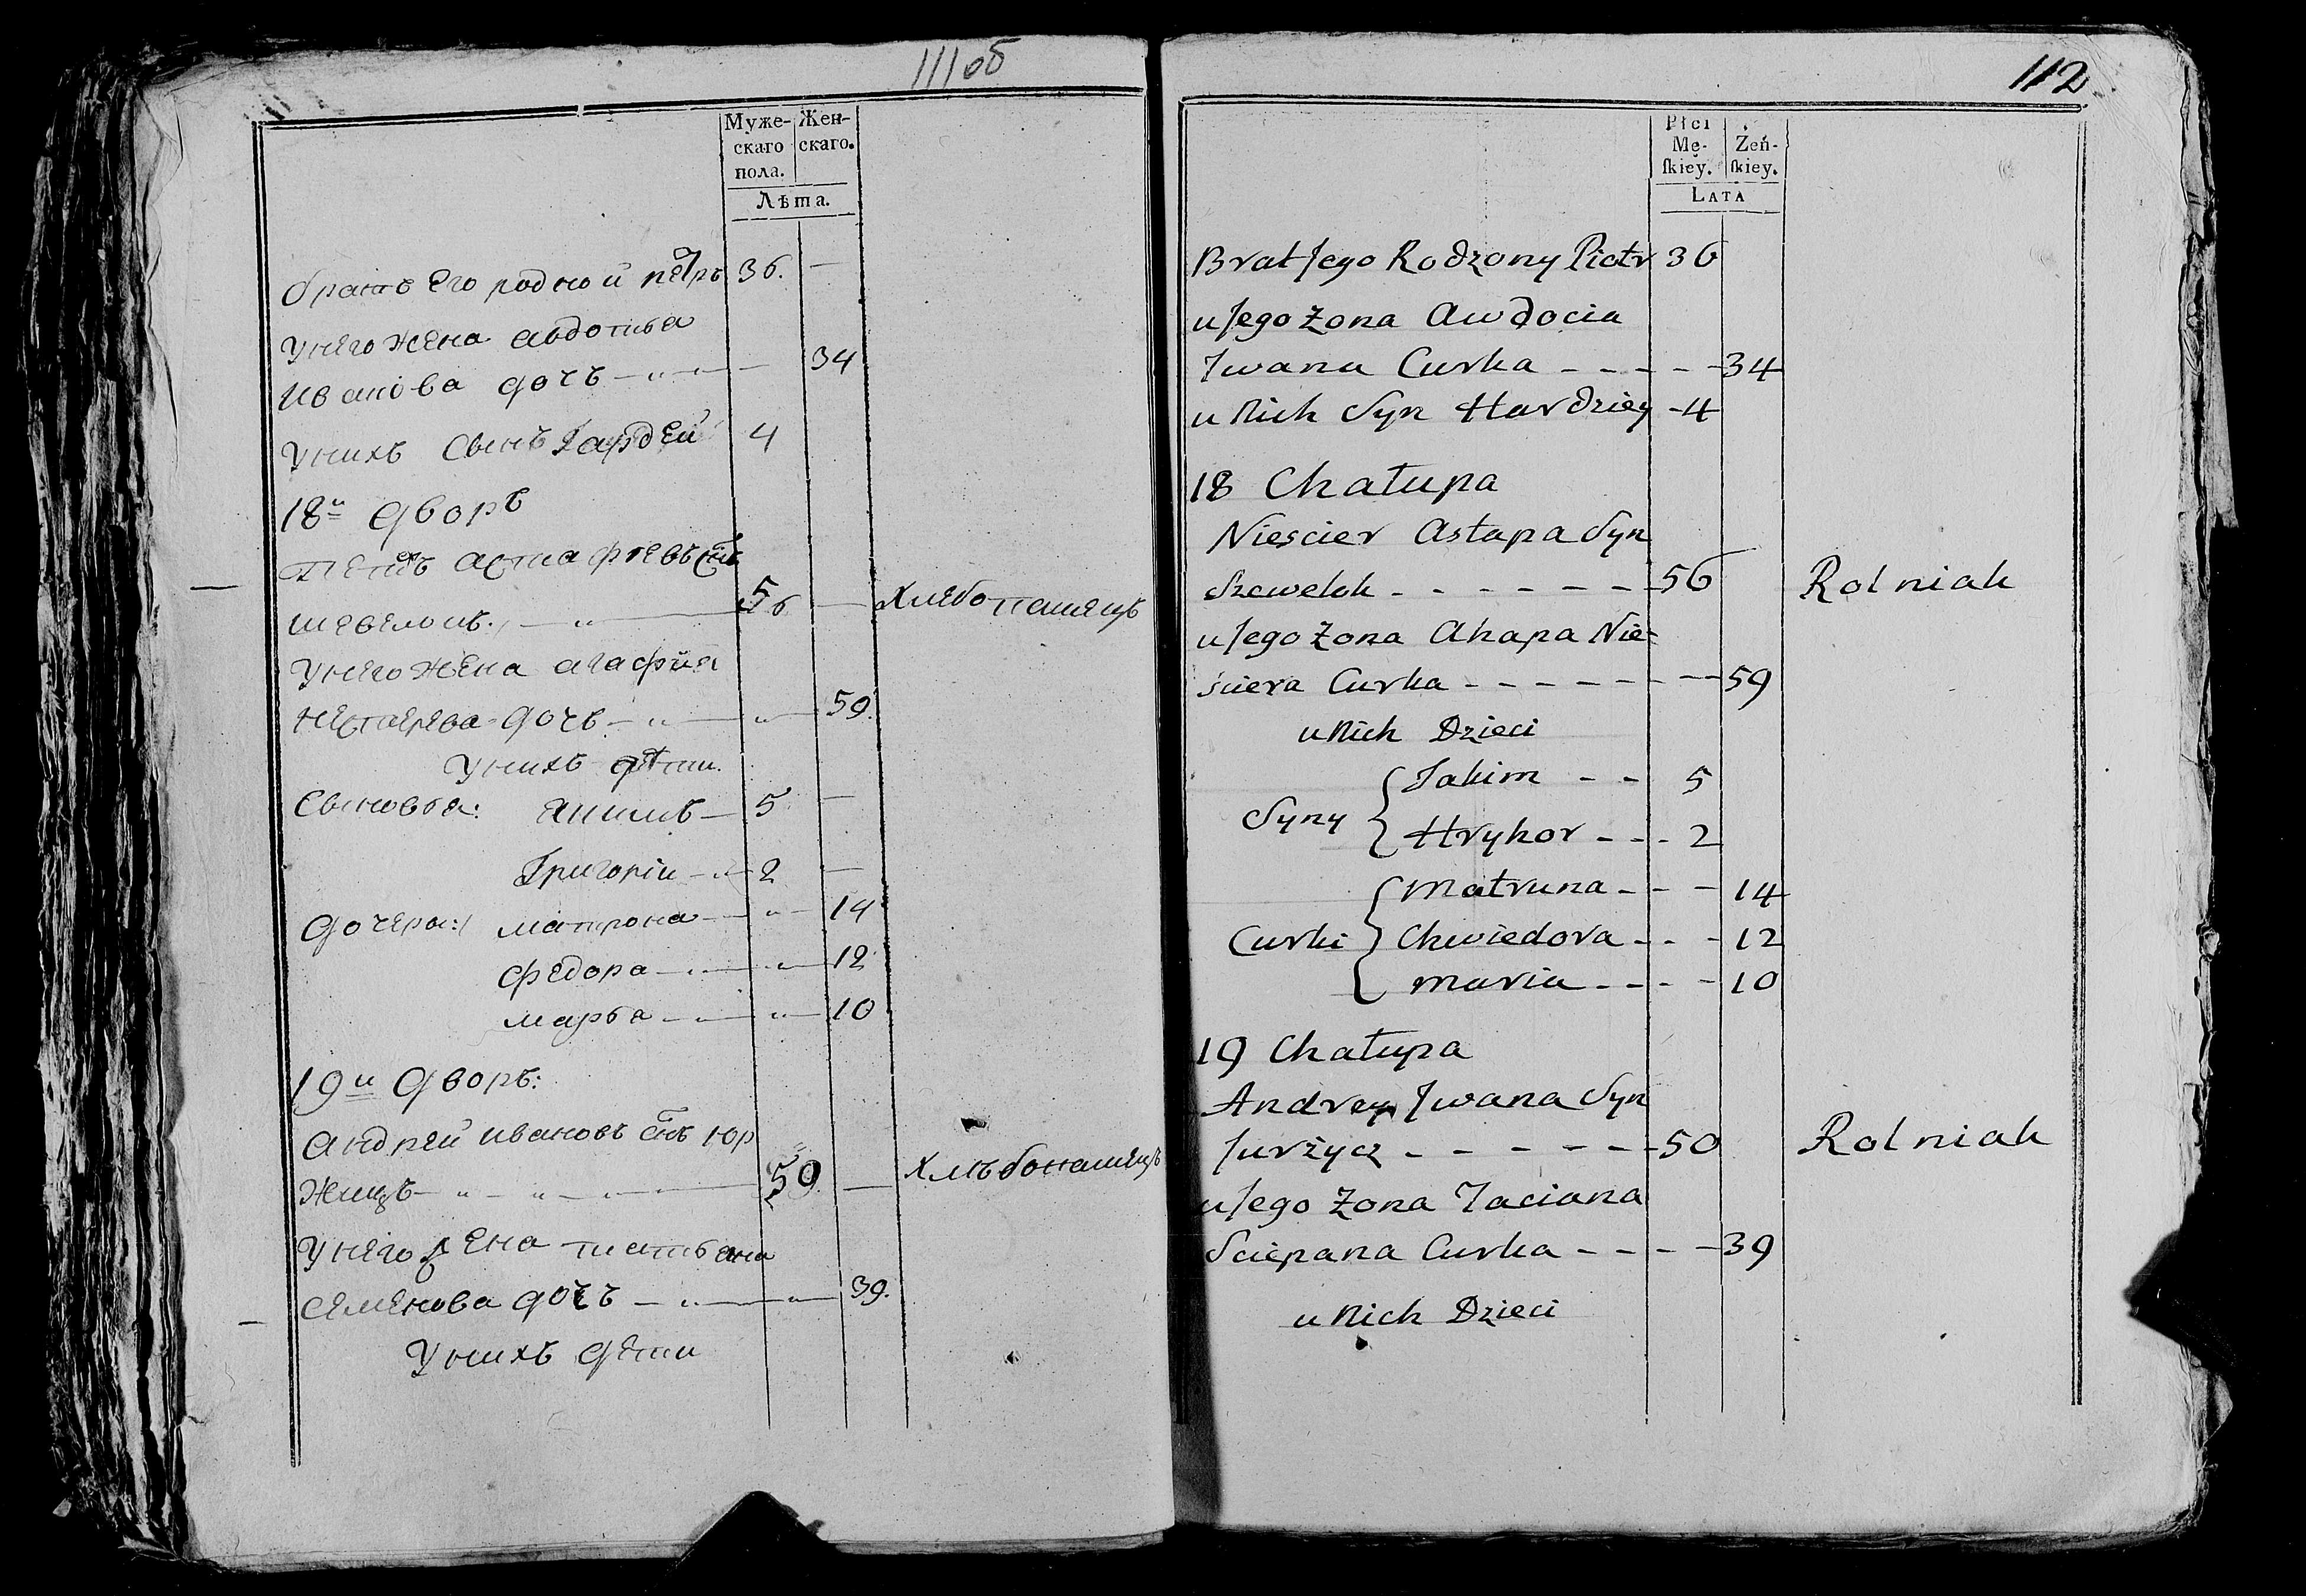 111об
Муже-
скаго
пола.
Жен-
скаго.
Лѣта.
братъ Его родной пётръ 36. —
У него жена авдотья
Иванова дочь — „ — — 34
У нихъ Сынъ Гардей 4
18й дворъ
астафьевъ Снъ
шевелокъ. — „ — 56 — Хлебопашецъ
У него жена агафия
нестерева дочь — „ — „ — 59.
У нихъ дѣти.
Сыновья: Якимъ — 5 —
Григоріи — „ — 2 —
дочери: матрона — „ — 14
федора — „ — „ — 12
марья — „ — „ — 10
19й дворъ:
Андрей Ивановъ Снъ Юр
жицъ — „ — „ — „ — 50. — Хлѣбопашецъ
У него жена татьяна
семенова дочь — „ — „ — 39.
У нихъ дети
112
Płci
Mę-
skiey.
Żeń-
skiey.
LATA
Brat Jego Rodzony Piotr 36
u Jego Żona Awdocia
Jwana Curka - - - - - 34
u Nich Syn Hardziey - 4
18 Chałupa
Niescier Astapa Syn
Szewelok - - - - - - - 56 Rolniak
u Jego Żona Ahapa Nie-
ściera Curka - - - - - - - - 59
u Nich Dzieci
Syny { Jakim - - 5
Hryhor - - - 2
Curki { Matruna - - - 14
Chwiedora - - - 12
Maria - - - - 10
19 Chałupa
Andrey Jwana Syn
Jurżycz - - - - - - 50 Rolniak
u Jego Żona Taciana
Sciepana Curka - - - - 39
u Nich Dzieci